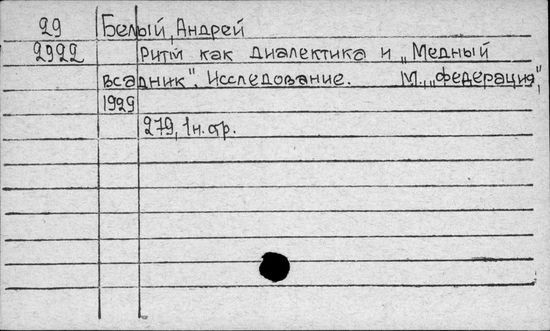 29 Белый, Андрей
2922 Ритм как диалектика и „Медный
всадник". Исследование. М., „Федерация",
1929
279, 1н. стр.